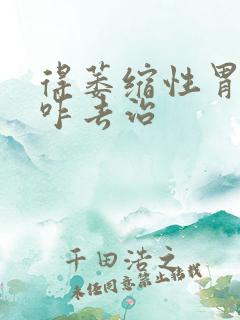 得萎缩性胃
咋去治
千田浩之
未经同意禁止转载